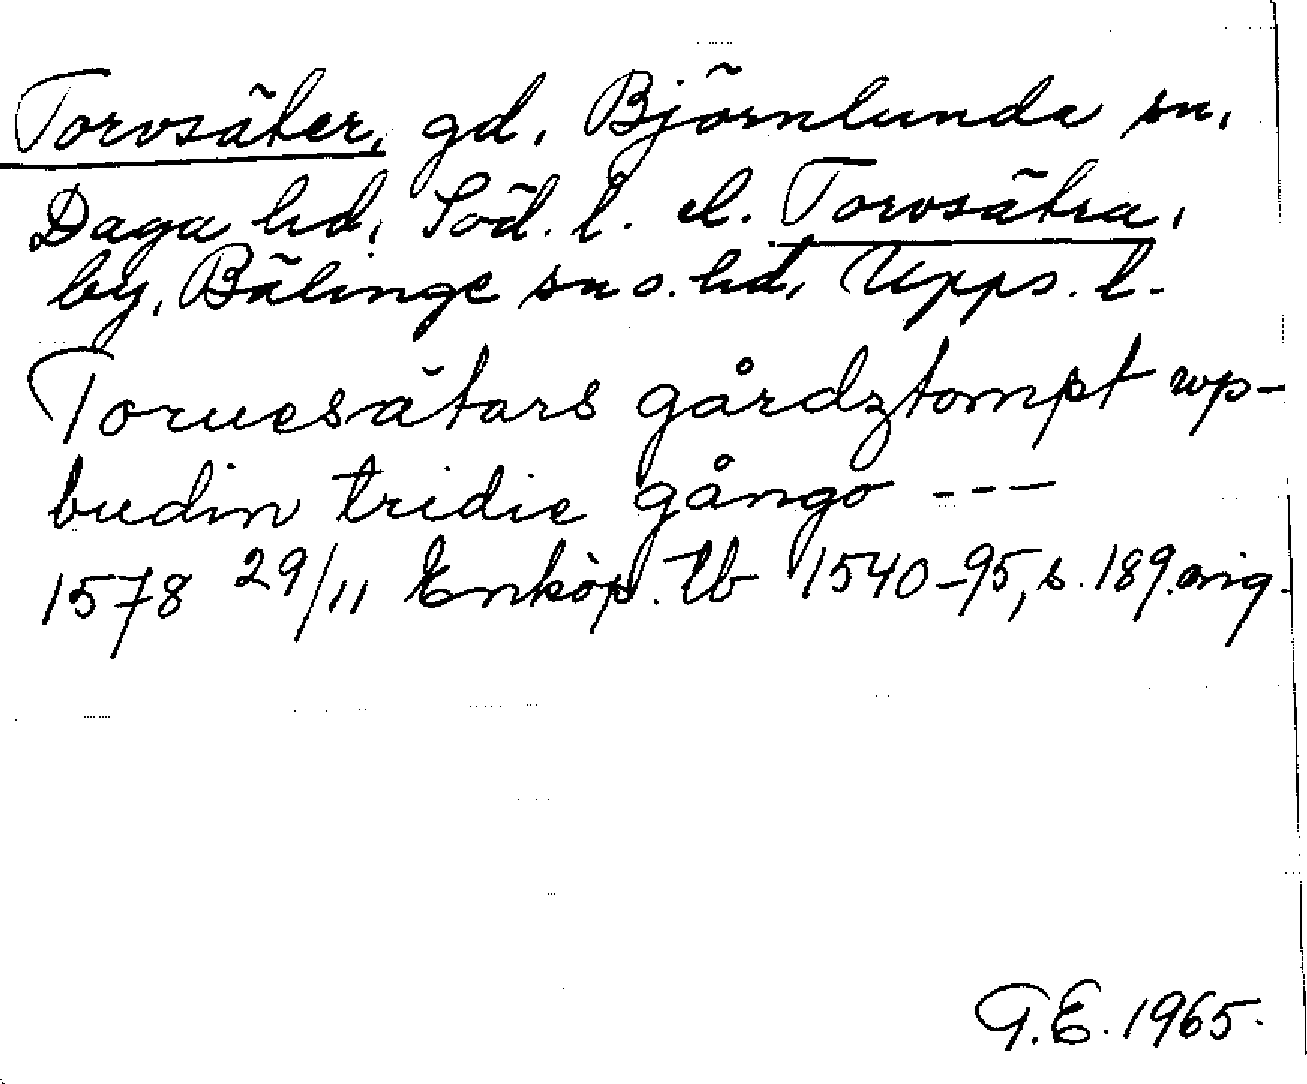 Torvsäter, gd, Björnlunda sn,
Daga hd, Söd. l. el. Torvsätra,
by, Bälinge sn o. hd, Upps. l.
Toruesätars gårdztompt wp-
budin tridie gångo ---
1578 29/11 Enköp. tb 1540-95, s. 189. orig.
G.E. 1965.